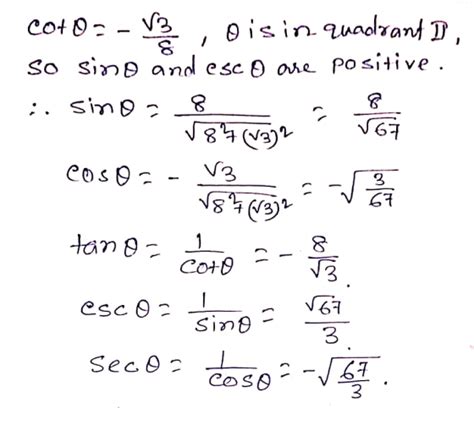 cotθ = - √3/8 , θ is in quadrant II,
so sinθ and cscθ are positive.
∴ sinθ = 8/√(8²+(√3)²) = 8/√67
cosθ = - √3/√(8²+(√3)²) = -√(3/67)
tanθ = 1/cotθ = - 8/√3.
cscθ = 1/sinθ = √67/3.
secθ = 1/cosθ = -√(67/3).